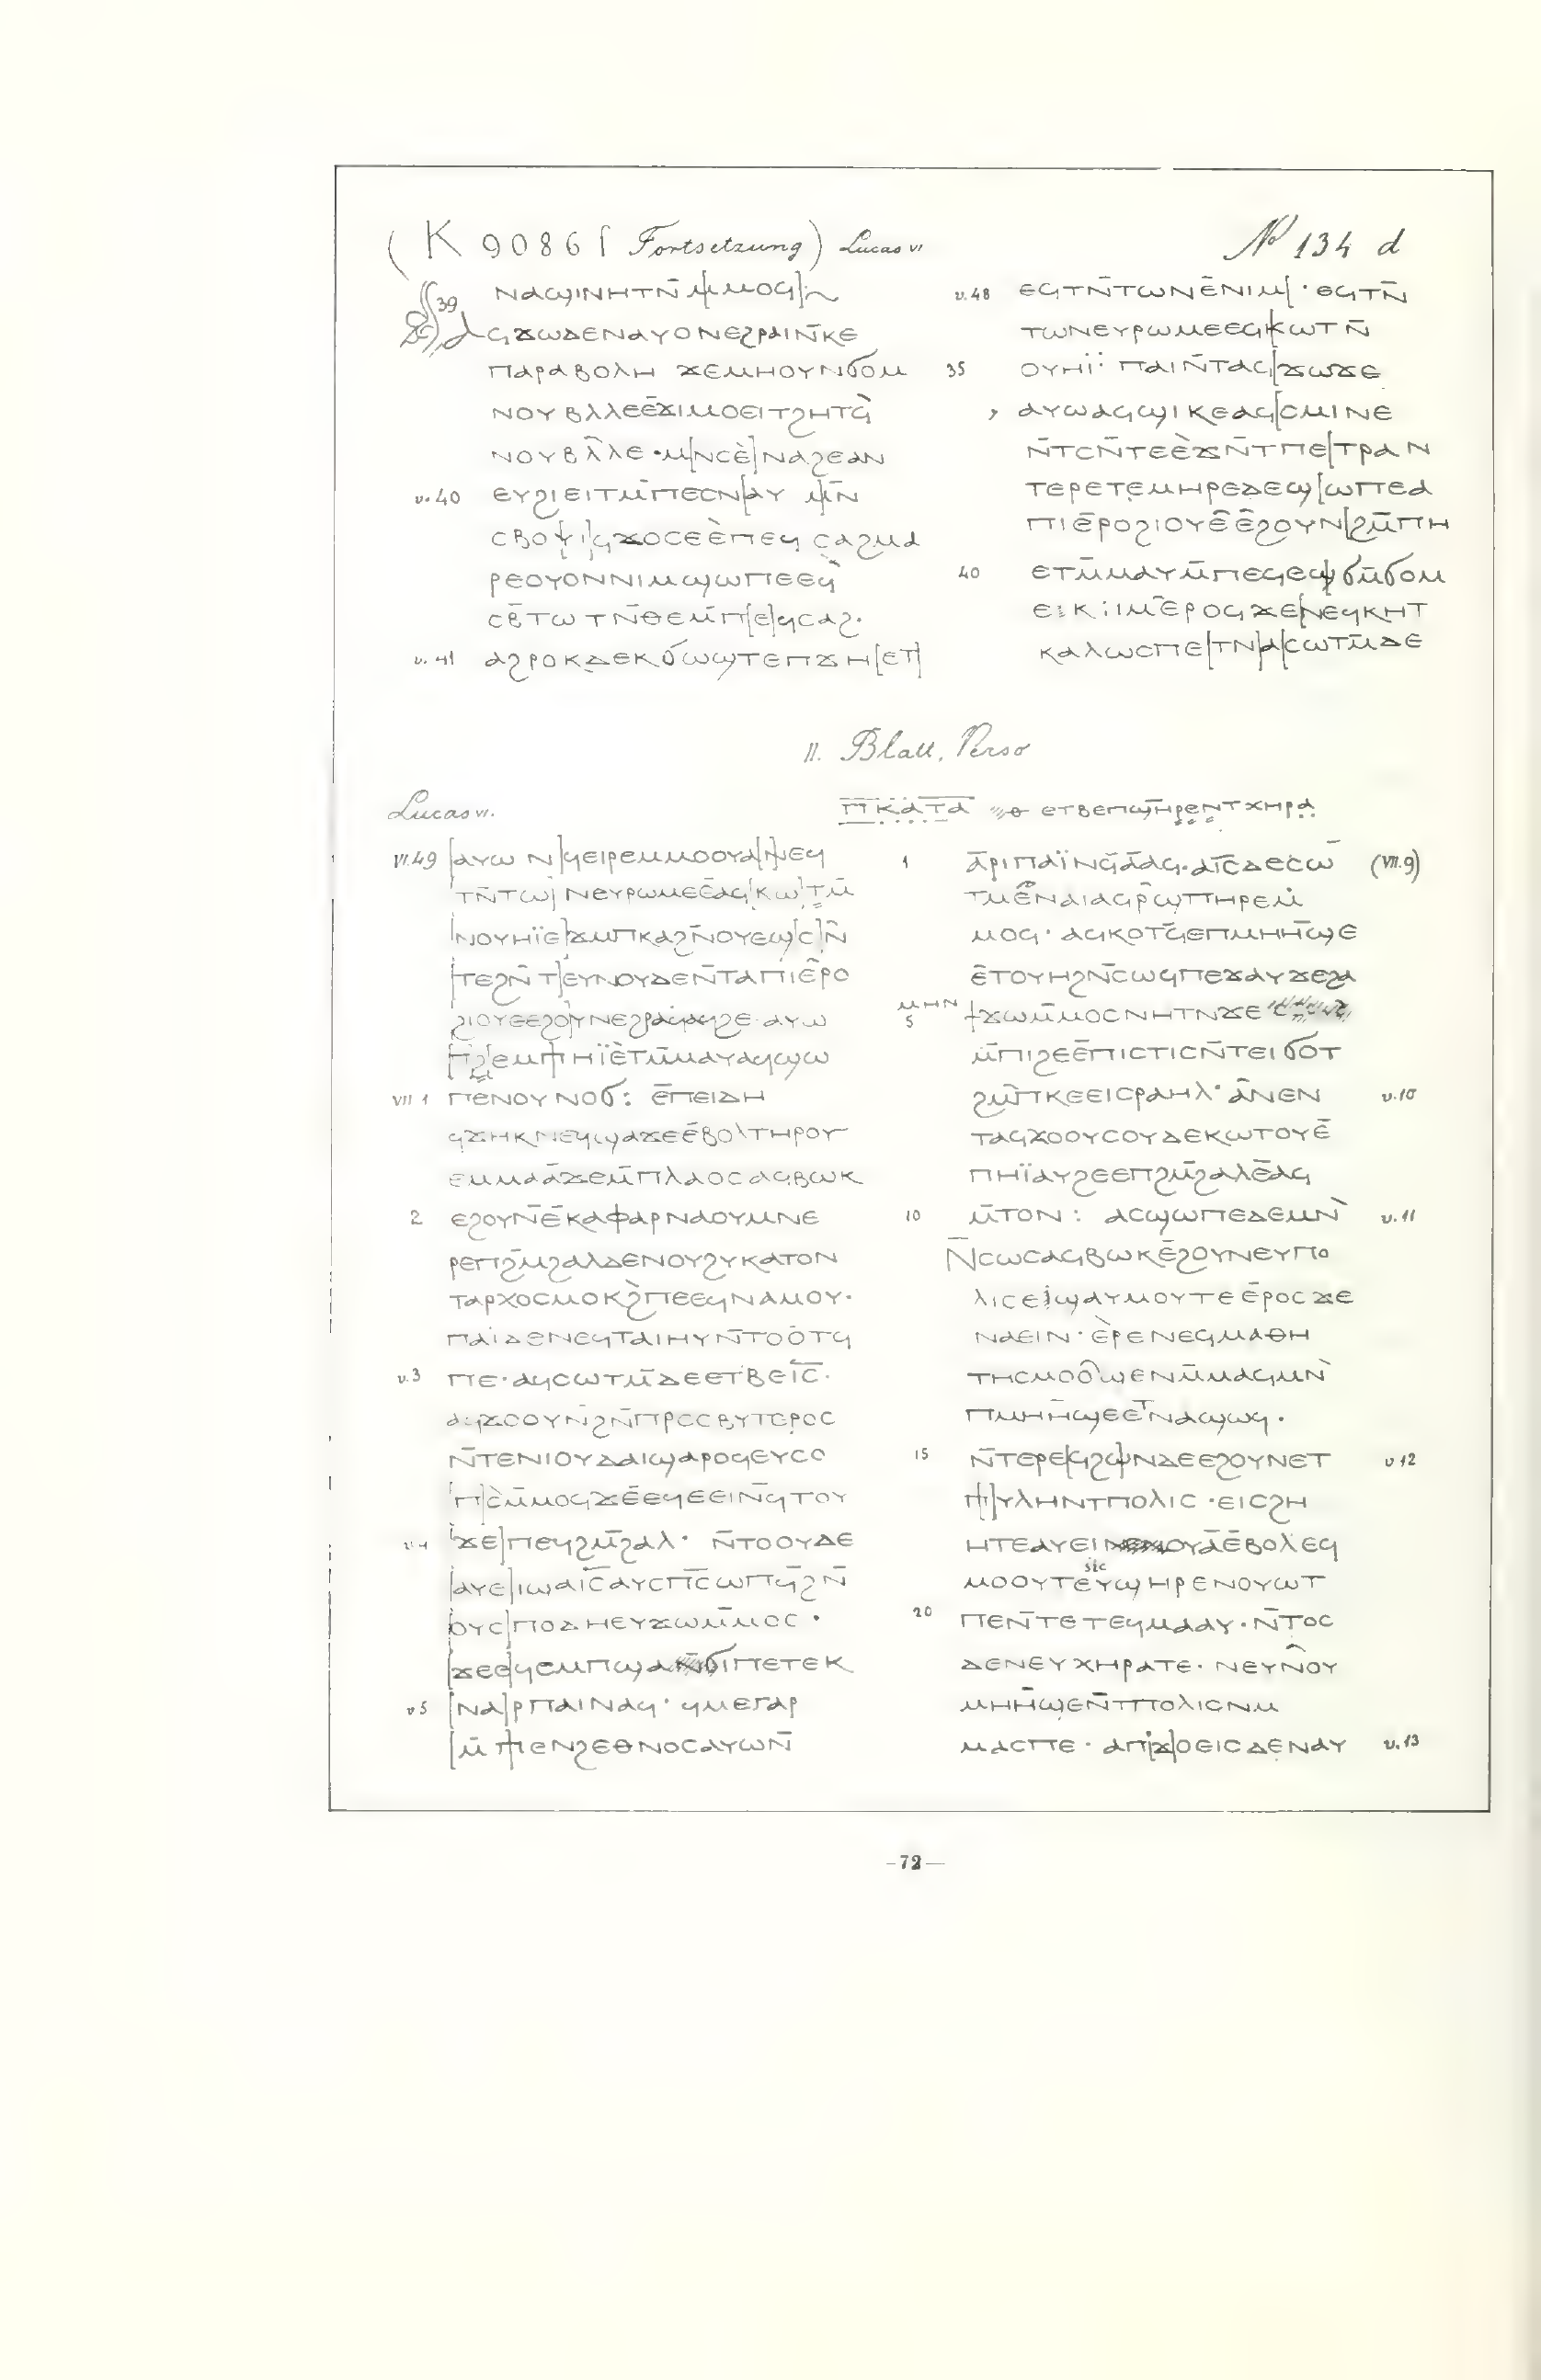 (K 9086 [Fortsetzung) Lucas VI
No 134 d
39 ⲛⲁϣⲓⲛⲏⲧⲛ̄ ⲙ̄]ⲙⲟϥ]
ⲁϥϫⲱⲇⲉⲛⲁⲩⲟⲛⲉϩⲣⲁⲓⲛ̄ⲕⲉ
ⲡⲁⲣⲁⲃⲟⲗⲏ ϫⲉⲙⲏⲟⲩⲛϭⲟⲙ
ⲛⲟⲩⲃⲗⲗⲉⲉ̄ϫⲓⲙⲟⲉⲓⲧϩⲏⲧϥ̀
ⲛⲟⲩⲃⲗ̄ⲗⲉ·ⲙ[ⲛⲥⲉ̀]ⲛⲁϩⲉⲁⲛ
v.40 ⲉⲩϩⲓⲉⲓⲧⲙ̄ⲡⲉⲥⲛ]ⲁⲩ ⲙ]ⲛ̄
ⲥⲃⲟⲩⲓ]ϥϫⲟⲥⲉⲉ̀ⲡⲉϥ ⲥⲁϩⲙⲁ
ⲣⲉⲟⲩⲟⲛⲛⲓⲙϣⲱⲡⲉⲉϥ̀
ⲥⲃ̄ⲧⲱⲧⲛ̄ⲑⲉⲙ̄ⲡ[ⲉ]ϥⲥⲁϩ·
v.41 ⲁϩⲣⲟⲕⲇⲉⲕϭⲱϣⲧⲉⲡϫⲏ[ⲉⲧ]
v.48 ⲉϥⲧⲛ̄ⲧⲱⲛⲉ̄ⲛⲓⲙ[·ⲉϥⲧⲛ̄
ⲧⲱⲛⲉⲩⲣⲱⲙⲉⲉϥ[ⲕⲱⲧ ⲛ̄
35 ⲟⲩⲏⲓ̈: ⲡⲁⲓⲛ̄ⲧⲁϥ[ϫⲱϫⲉ
, ⲁⲩⲱⲁϥϣⲓⲕⲉⲁϥ[ⲥⲙⲓⲛⲉ
ⲛ̄ⲧⲥⲛ̄ⲧⲉⲉ̀ϫⲛ̄ⲧⲡⲉ[ⲧⲣⲁ ⲛ
ⲧⲉⲣⲉⲧⲉⲙⲏⲣⲉⲇⲉϣ[ⲱⲡⲉⲁ
ⲡⲓⲉ̄ⲣⲟϩⲓⲟⲩⲉ̂ⲉ̂ϩⲟⲩⲛ[ϩⲙ̄ⲡⲏ
40 ⲉⲧⲙ̄ⲙⲁⲩⲙ̄ⲡⲉϥⲉϣϭⲙ̄ϭⲟⲙ
ⲉⲓⲕ:ⲓⲙⲉ̄ⲣⲟϥϫⲉ[ⲛⲉϥⲕⲏⲧ
ⲕⲁⲗⲱⲥⲡⲉ[ⲧⲛ]ⲁ[ⲥⲱⲧⲙ̄ⲇⲉ
II. Blatt, Verso
Lucas VI.
ⲡ̄ⲕ̄ⲁ̄ⲧ̄ⲁ̄ ⲑ ⲉⲧⲃⲉⲡϣⲏⲣⲉⲛⲧⲭⲏⲣⲁ
VI.49 [ⲁⲩⲱ ⲛ]ϥⲉⲓⲣⲉⲙⲙⲟⲟⲩⲁ[ⲛ]ⲉϥ
ⲧⲛ̄ⲧⲱ]ⲛⲉⲩⲣⲱⲙⲉⲉ̄ⲁϥ[ⲕⲱ]ⲧ ⲙ̄
[ⲛⲟⲩⲏⲓ̈ⲉ]ϫⲙⲡⲕⲁϩⲛ̄ⲟⲩⲉϣ[ⲥ]ⲛ̄
[ⲧⲉϩⲛ̄ ⲧ]ⲉⲩⲛⲟⲩⲇⲉⲛ̄ⲧⲁⲡⲓⲉ̄ⲣⲟ
ϩⲓⲟⲩⲉⲉϩⲟⲩⲛⲉϩⲣⲁϥⲁϥϩⲉ·ⲁⲩⲱ
[ⲡϩ]ⲉⲙⲡⲏⲓ̈ⲉ̀ⲧⲙ̄ⲙⲁⲩⲁϥϣⲱ
VII 1 ⲡⲉⲛⲟⲩⲛⲟϭ: ⲉ̄ⲡⲉⲓⲇⲏ
ϥϫⲏⲕⲛⲉϥϣⲁϫⲉⲉ̄ⲃⲟⲗⲧⲏⲣⲟⲩ
ⲉⲙⲙⲁⲁ̄ϫⲉⲙ̄ⲡⲗⲁⲟⲥⲁϥⲃⲱⲕ
2 ⲉϩⲟⲩⲛ̄ⲉ̄ⲕⲁⲫⲁⲣⲛⲁⲟⲩⲙⲛⲉ
ⲣⲉⲡϩⲙ̄ϩⲁⲗⲇⲉⲛⲟⲩϩⲩⲕⲁⲧⲟⲛ
ⲧⲁⲣⲭⲟⲥⲙⲟⲕϩ̀ⲡⲉⲉϥⲛⲁⲙⲟⲩ·
ⲡⲁⲓ̈ⲇⲉⲛⲉϥⲧⲁⲓⲏⲩⲛ̄ⲧⲟⲟⲧϥ
v.3 ⲡⲉ·ⲁϥⲥⲱⲧⲙ̄ⲇⲉⲉⲧⲃⲉⲓ̄ⲥ̄·
ⲁϥϫⲟⲟⲩⲛ̄ϩⲛ̄ⲡⲣⲉⲥⲃⲩⲧⲉⲣⲟⲥ
ⲛ̄ⲧⲉⲛⲓⲟⲩⲇⲁⲓϣⲁⲣⲟϥⲉⲩⲥⲟ
ⲡ]ⲥ̀ⲙ̄ⲙⲟϥϫⲉ̄ⲉϥⲉⲉⲓⲛ̄ϥⲧⲟⲩ
v.4 ϫⲉ]ⲡⲉϥϩⲙ̄ϩⲁⲗ· ⲛ̄ⲧⲟⲟⲩⲇⲉ
[ⲁⲩⲉ]ⲓϣⲁⲓ̄ⲥ̄ⲁⲩⲥⲡ̄ⲥ̄ⲱⲡϥ̄ϩⲛ̄
ⲟⲩⲥ]ⲡⲟⲇⲏⲉⲩϫⲱⲙ̄ⲙⲟⲥ·
[ϫⲉ]ϥⲉⲙⲡϣⲁϭⲓⲡⲉⲧⲉⲕ
v5 [ⲛⲁ]ⲣⲡⲁⲓⲛⲁϥ· ϥⲙⲉⲅⲁⲣ
[ⲙ̄ ⲡ]ⲉⲛϩⲉⲑⲛⲟⲥⲁⲩⲱⲛ̄
1 ⲁ̄ⲣⲓⲡⲁⲓ̈ⲛϥ̄ⲁ̄ⲁϥ·ⲁⲓ̄ⲥ̄ⲇⲉⲥⲱ̄ (VII.9)
ⲧⲙⲉ̂ⲛⲁⲓⲁϥⲣ̄ϣⲡⲏⲣⲉⲙ̀
ⲙⲟϥ· ⲁϥⲕⲟⲧϥ̄ⲉⲡⲙⲏⲏ̄ϣⲉ
ⲉ̄ⲧⲟⲩⲏϩⲛ̄ⲥⲱϥⲡⲉϫⲁⲩϫⲉϩⲁ
ⲙⲏⲛ
5 ϯϫⲱⲙ̄ⲙⲟⲥⲛⲏⲧⲛϫⲉ
ⲙ̄ⲡⲓϩⲉⲉ̄ⲡⲓⲥⲧⲓⲥⲛ̄ⲧⲉⲓϭⲟⲧ
ϩⲙ̄ⲡⲕⲉⲉⲓⲥⲣⲁⲏⲗ·ⲁ̂ⲛⲉⲛ v.10
ⲧⲁϥϫⲟⲟⲩⲥⲟⲩⲇⲉⲕⲱⲧⲟⲩⲉ̄
ⲡⲏⲓ̈ⲁⲩϩⲉⲉⲡϩⲙ̄ϩⲁⲗⲉ̄ⲁϥ
10 ⲙ̄ⲧⲟⲛ: ⲁⲥϣⲱⲡⲉⲇⲉⲙⲛ̀ v.11
ⲛ̄ⲥⲱⲥⲁϥⲃⲱⲕⲉ̄ϩⲟⲩⲛⲉⲩⲡⲟ
ⲗⲓⲥⲉ]ϣⲁⲩⲙⲟⲩⲧⲉⲉ̄ⲣⲟⲥϫⲉ
ⲛⲁⲉⲓⲛ·ⲉ̀ⲣⲉⲛⲉϥⲙⲁⲑⲏ
ⲧⲏⲥⲙⲟⲟ̂ϣⲉⲛⲙ̄ⲙⲁϥⲙⲛ̀
ⲡⲙⲏⲏ̄ϣⲉⲉⲧⲛⲁϣⲱϥ·
15 ⲛ̄ⲧⲉⲣⲉ[ϥϩⲱ]ⲛⲇⲉⲉϩⲟⲩⲛⲉⲧ v 12
ⲡ]ⲩⲗⲏⲛⲧⲡⲟⲗⲓⲥ·ⲉⲓⲥϩⲏ
ⲏⲧⲉⲁⲩⲉⲓⲛⲟⲩⲁ̄ⲉ̄ⲃⲟⲗⲉϥ
sic
ⲙⲟⲟⲩⲧⲉⲩϣⲏⲣⲉⲛⲟⲩⲱⲧ
20 ⲡⲉⲛ̄ⲧⲉⲧⲉϥⲙⲁⲁⲩ·ⲛ̄ⲧⲟⲥ
ⲇⲉⲛⲉⲩⲭⲏⲣⲁⲧⲉ·ⲛⲉⲩⲛ̂ⲟⲩ
ⲙⲏⲏ̄ϣⲉⲛ̄ⲧⲡⲟⲗⲓⲥⲛⲙ
ⲙⲁⲥⲡⲉ·ⲁⲡ[ϫ]ⲟⲉⲓⲥⲇⲉⲛⲁⲩ v.13
-72-